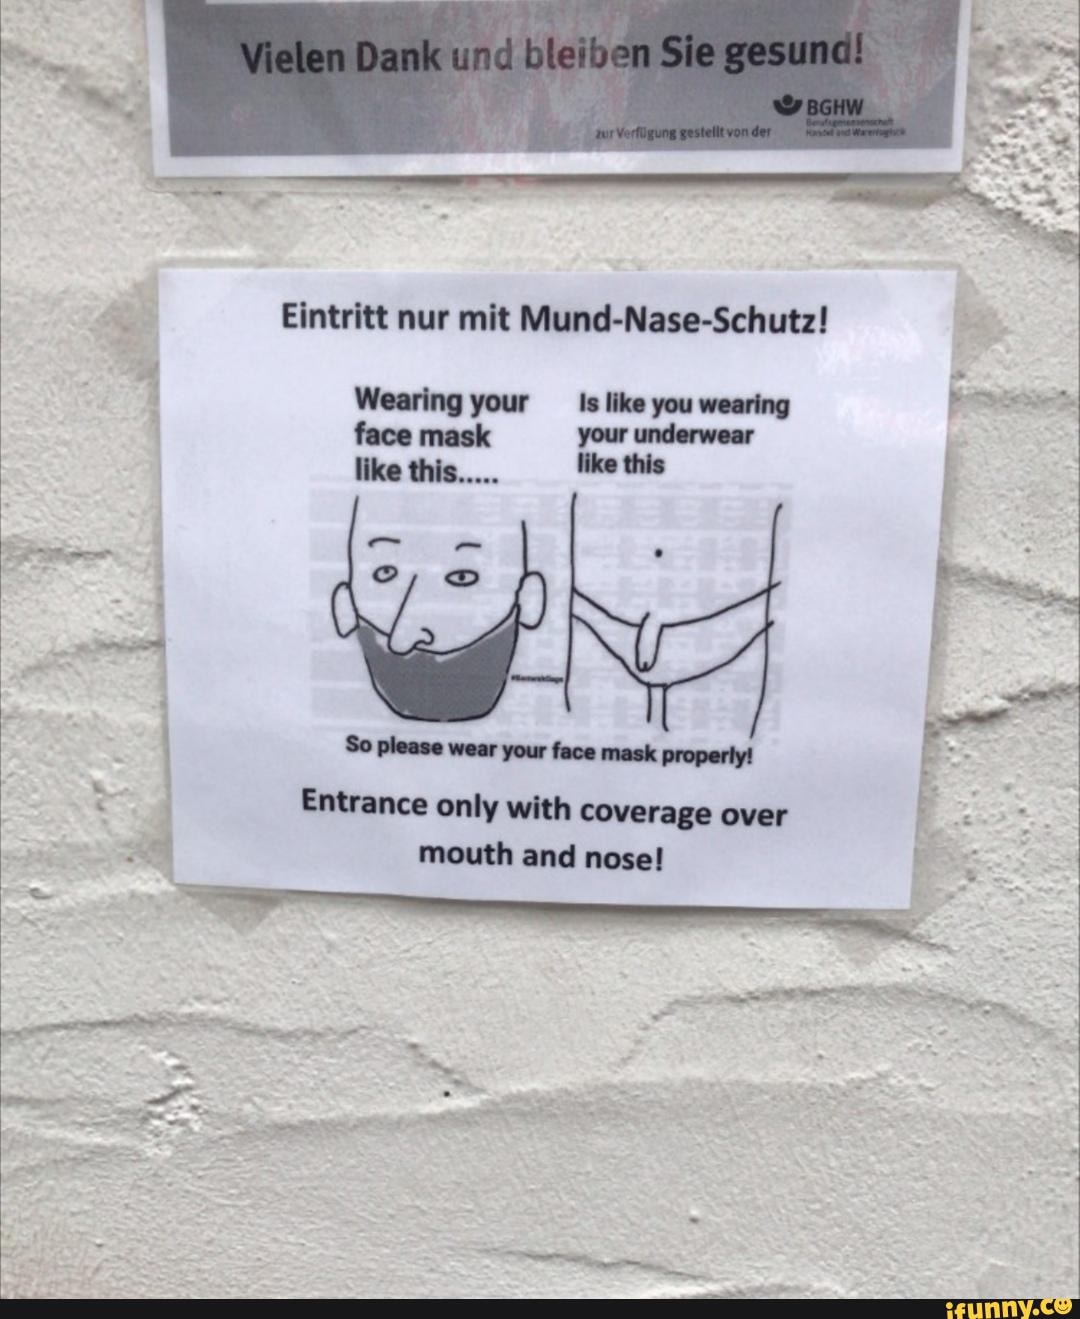 Vielen Dank und bleiben Sie gesund!
BGHW
Berufsgenossenschaft
Handel und Warenlogistik
zur Verfügung gestellt von der
Eintritt nur mit Mund-Nase-Schutz!
Wearing your
face mask
like this.....
Is like you wearing
your underwear
like this
So please wear your face mask properly!
Entrance only with coverage over
mouth and nose!
ifunny.co